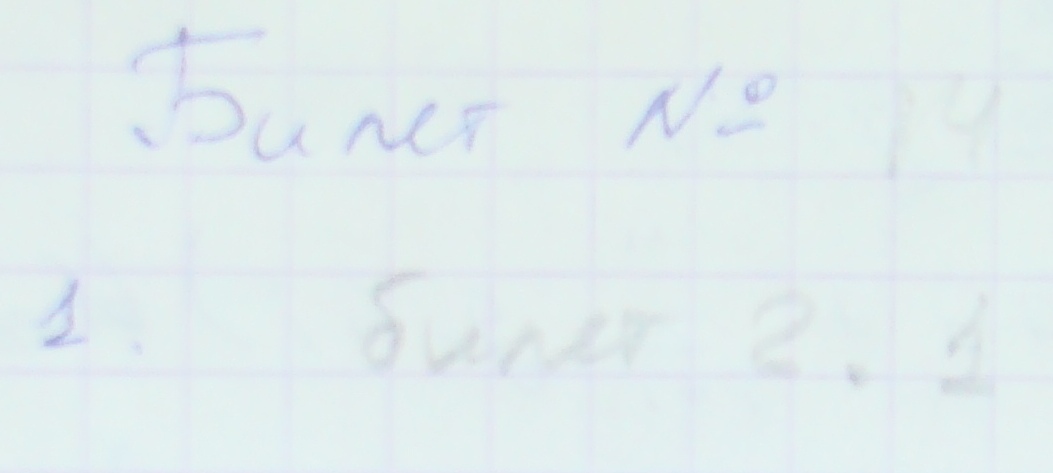 Билет № 14
1. билет 2. 1